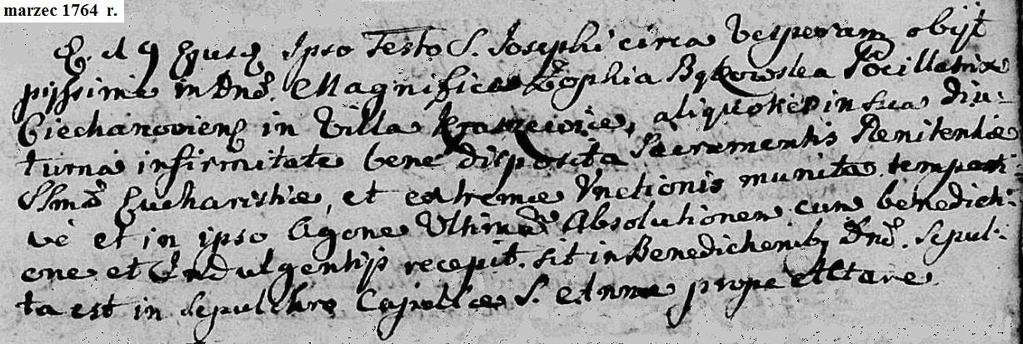 marzec 1764 r.
d 19 Ejusd Ipso Festo S. Josephi circa Vesperam obijt
pijssime in Dno. Magnifica Zophia Bąkowska Pocillatrix
Ciechanovien in Villa Kraszewice, aliquoties in sua diu-
turna infirmitate bene disposita Sacramentis Penitentiæ
SSmæ Eucharistiæ, et extremæ Unctionis munita tempesti
vè et in ipso Agone Ultimam Absolutionem cum benedicti-
one et Indulgentijs recepit. sit in Benedictionib9 Dno. Sepul-
ta est in sepulchro Capellæ S. Annæ prope Altare.